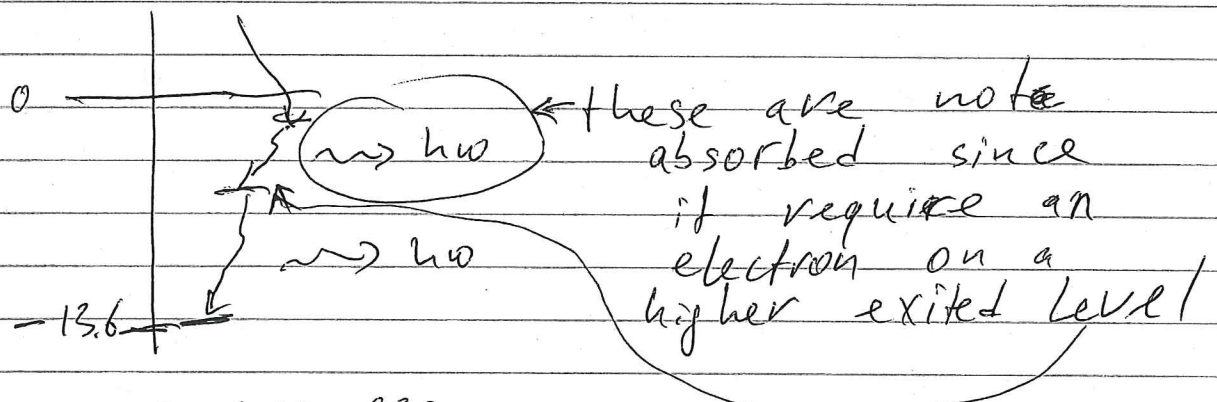 0
ħω
these are note
absorbed since
it require an
electron on a
higher exited level
ħω
-13.6